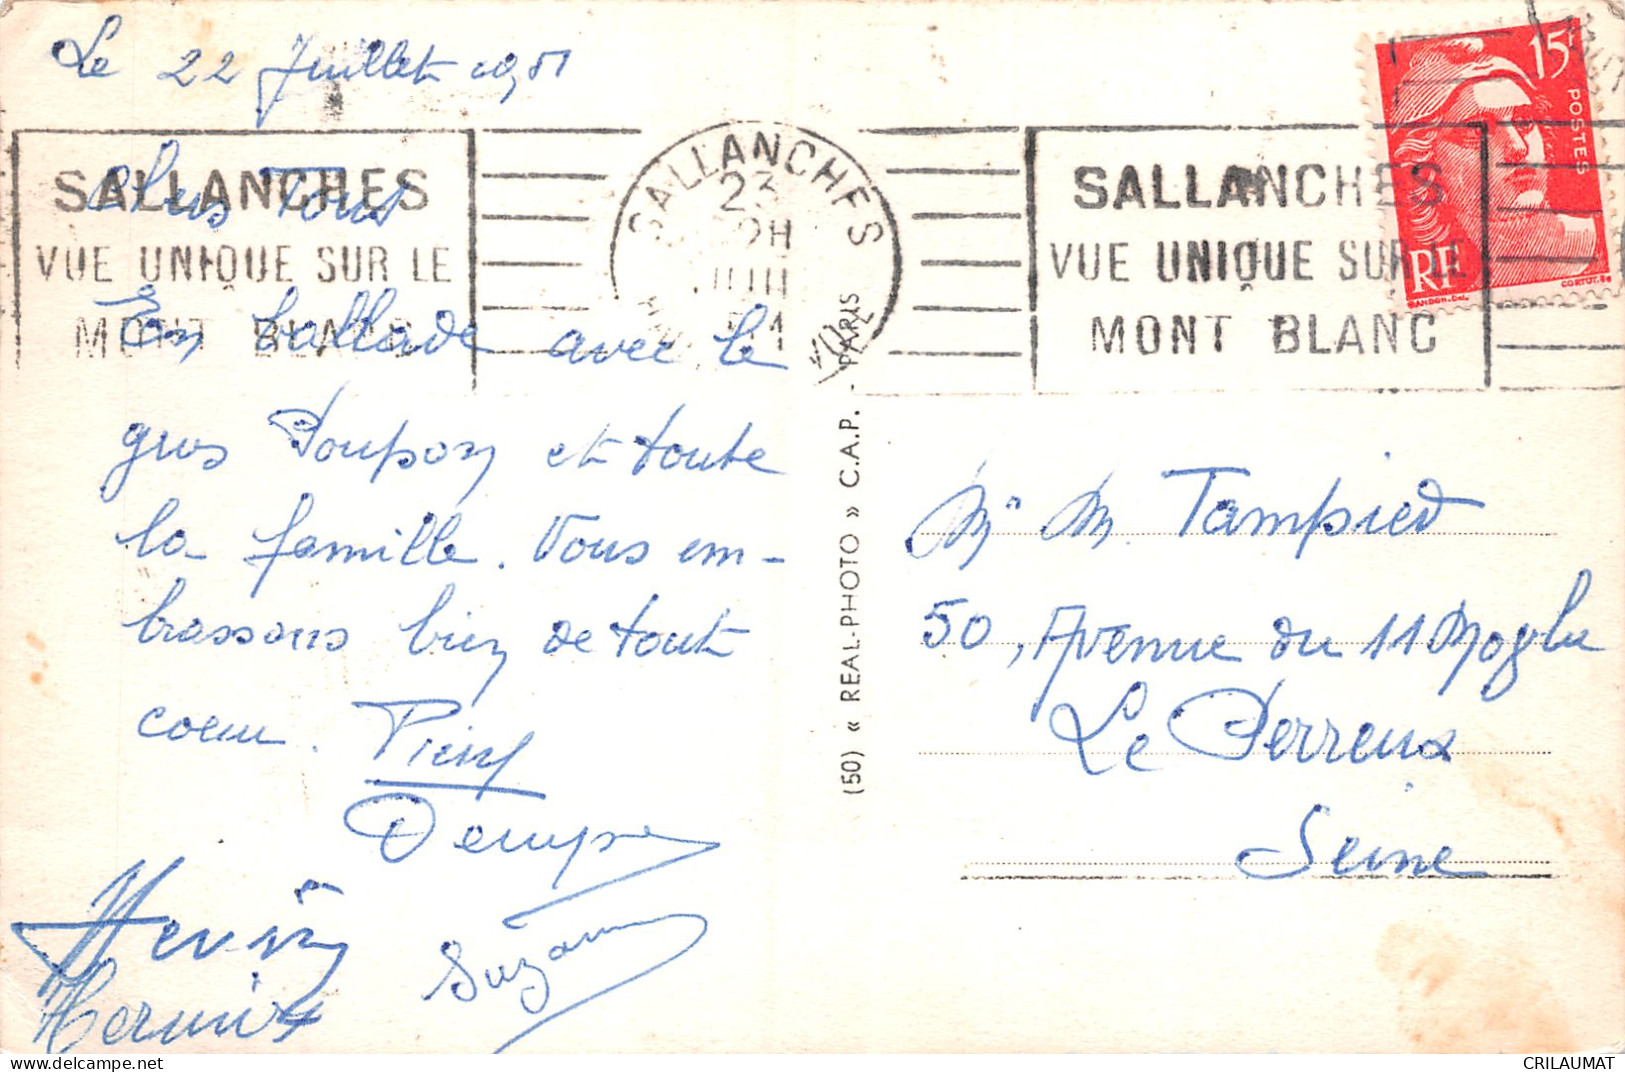 Le 22 Juillet 1951
SALLANCHES
VUE UNIQUE SUR LE
MONT BLANC
SALLANCHES
23
JUIL
SALLANCHES
VUE UNIQUE SUR LE
MONT BLANC
15F
POSTES
RF
GANDON.Del.
CORTOT.Sc
Tous
En ballade avec le
gros et toute
la famille. Vous em-
brassons bien de tout
coeur.
Henri
Suzanne
(50) « REAL-PHOTO » C.A.P. - PARIS
M. Tampied
50, Avenue du 11 9bre
Le Perreux
Seine
CRILAUMAT